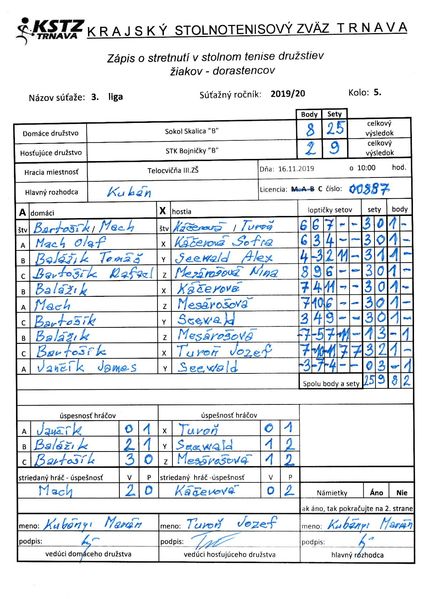 KSTZ TRNAVA KRAJSKÝ STOLNOTENISOVÝ ZVÄZ TRNAVA
Zápis o stretnutí v stolnom tenise družstiev
žiakov - dorastencov
Názov súťaže: 3. liga Súťažný ročník: 2019/20 Kolo: 5.
Body Sety
Domáce družstvo Sokol Skalica "B" 8 25 celkový výsledok
Hosťujúce družstvo STK Bojničky "B" 2 9 celkový výsledok
Hracia miestnosť Telocvičňa III.ZŠ Dňa: 16.11.2019 o 10:00 hod.
Hlavný rozhodca Kubán Licencia: M A B C číslo: 00887
A domáci X hostia loptičky setov sety body
štv Bartošík / Mach štv Káčerová / Turoň 6 6 7 - - 3 0 1 -
A Mach Olaf X Káčerová Sofia 6 3 4 - - 3 0 1 -
B Balážik Tomáš Y Seewald Alex -4 -3 2 11 - 3 1 1 -
C Bartošík Rafael Z Mesárošová Nina 8 9 6 - - 3 0 1 -
B Balážik X Káčerová 7 4 11 - - 3 0 1 -
A Mach Z Mesárošová 7 10 6 - - 3 0 1 -
C Bartošík Y Seewald 3 4 9 - - 3 0 1 -
B Balážik Z Mesárošová -7 -5 7 -11 - 1 3 - 1
C Bartošík X Turoň Jozef 7 7 3 2 1 -
A Jančík Y Seewald -3 -7 -4 - - 0 3 - 1
Spolu body a sety 25 9 8 2
úspesnosť hráčov úspešnosť hráčov
A Jančík 0 1 X Turoň 0 1
B Balážik 2 1 Y Seewald 1 2
C Bartošík 3 0 Z Mesárošová 1 2
striedaný hráč - úspešnosť V P striedaný hráč - úspešnosť V P
Mach 2 0 Káčerová 0 2 Námietky Áno Nie
ak áno, tak pokračujte na 2. strane
meno: Kubányi Marián meno: Turoň Jozef meno: Kubányi Marián
podpis: podpis: podpis:
vedúci domáceho družstva vedúci hosťujúceho družstva hlavný rozhodca